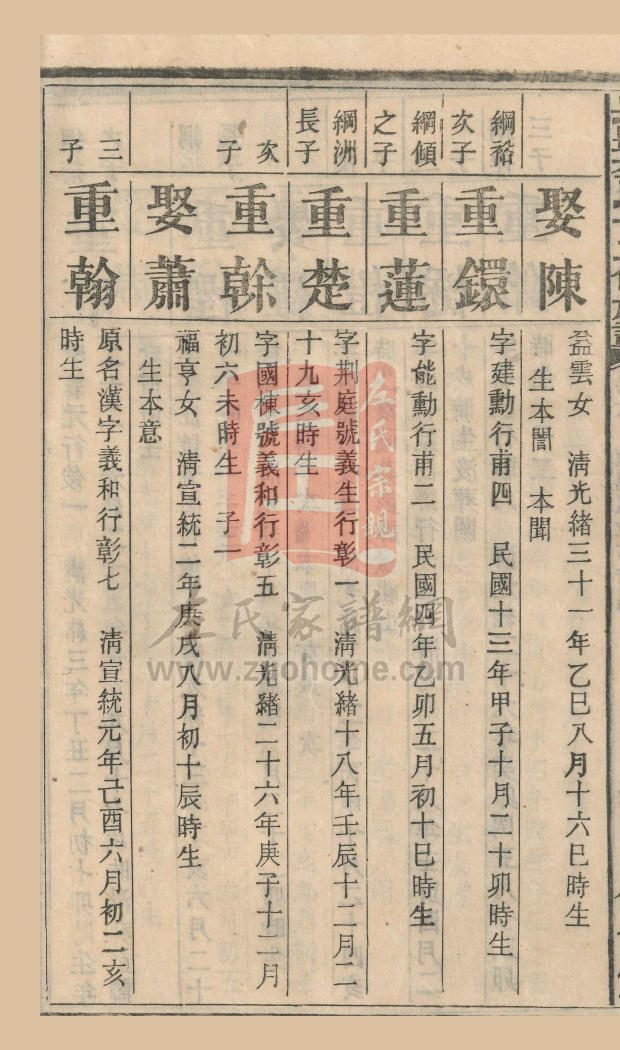 娶陳
益雲女　清光緒三十一年乙巳八月十六巳時生
生本誾　本聞
綱裕
次子
重鐶
字建勳行甫四　民國十三年甲子十月二十卯時生
綱傾
之子
重蓮
字能勳行甫二　民國四年乙卯五月初十巳時生
綱洲
長子
重楚
字荆庭號義生行彰一　清光緒十八年壬辰十二月二
十九亥時生
次
子
重榦
字國棟號義和行彰五　清光緒二十六年庚子十二月
初六未時生　子一
娶蕭
福亨女　清宣統二年庚戌八月初十辰時生
生本意
三
子
重翰
原名漢字義和行彰七　清宣統元年己酉六月初二亥
時生
左氏宗親
左氏家譜網
www.zuohome.com